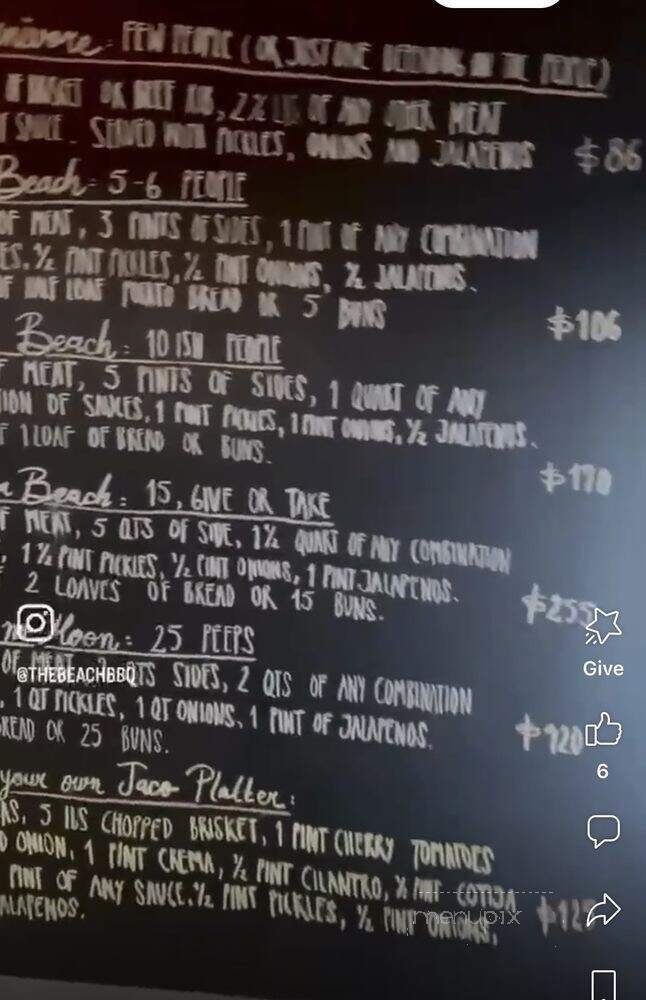 nivore: FEW PEOPLE (OR JUST ONE DEPENDING ON THE PEOPLE)
OR BEEF RIB, 2 ½ LBS OF ANY OTHER MEAT
SAUCE. SERVED WITH PICKLES, ONIONS AND JALAPENOS $86
Beach: 5-6 PEOPLE
OF MEAT, 3 PINTS OF SIDES, 1 PINT OF ANY COMBINATION
ES. ½ PINT PICKLES, ½ PINT ONIONS, ½ JALAPENOS.
F HALF LOAF POTATO BREAD OR 5 BUNS $106
Beach: 10 ISH PEOPLE
F MEAT, 5 PINTS OF SIDES, 1 QUART OF ANY
ION OF SAUCES, 1 PINT PICKLES, 1 PINT ONIONS, ½ JALAPENOS.
F 1 LOAF OF BREAD OR BUNS. $170
a Beach: 15, GIVE OR TAKE
F MEAT, 5 QTS OF SIDE, 1½ QUART OF ANY COMBINATION
, 1½ PINT PICKLES, ½ PINT ONIONS, 1 PINT JALAPENOS.
2 LOAVES OF BREAD OR 15 BUNS. $255
Moon: 25 PEEPS
OF MEAT, QTS SIDES, 2 QTS OF ANY COMBINATION
@THEBEACHBBQ
, 1 QT PICKLES, 1 QT ONIONS, 1 PINT OF JALAPENOS.
READ OR 25 BUNS.
your own Taco Platter:
AS, 5 LBS CHOPPED BRISKET, 1 PINT CHERRY TOMATOES
D ONION, 1 PINT CREMA, ½ PINT CILANTRO, ½ PINT COTIJA
PINT OF ANY SAUCE. ½ PINT PICKLES, ½ PINT ONIONS,
ALAPENOS.
menupix
Give
6